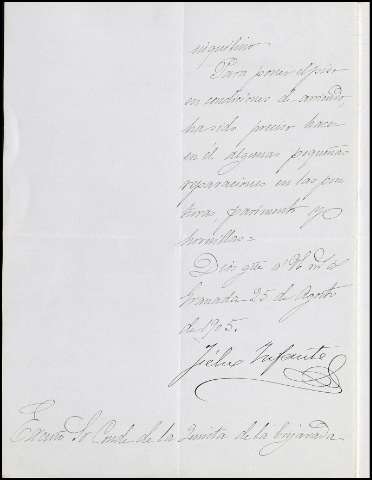 inquilino.
Para poner el piso
en condiciones de arriendo,
ha sido preciso hacer
en él algunas pequeñas
reparaciones en las pin
turas, pavimento y
hornillas =
Dios gue a V. m. a.
Granada 25 de Agosto
de 1905.
Félix Infante
Excmo Sr Conde de la Quinta de la Enjarada